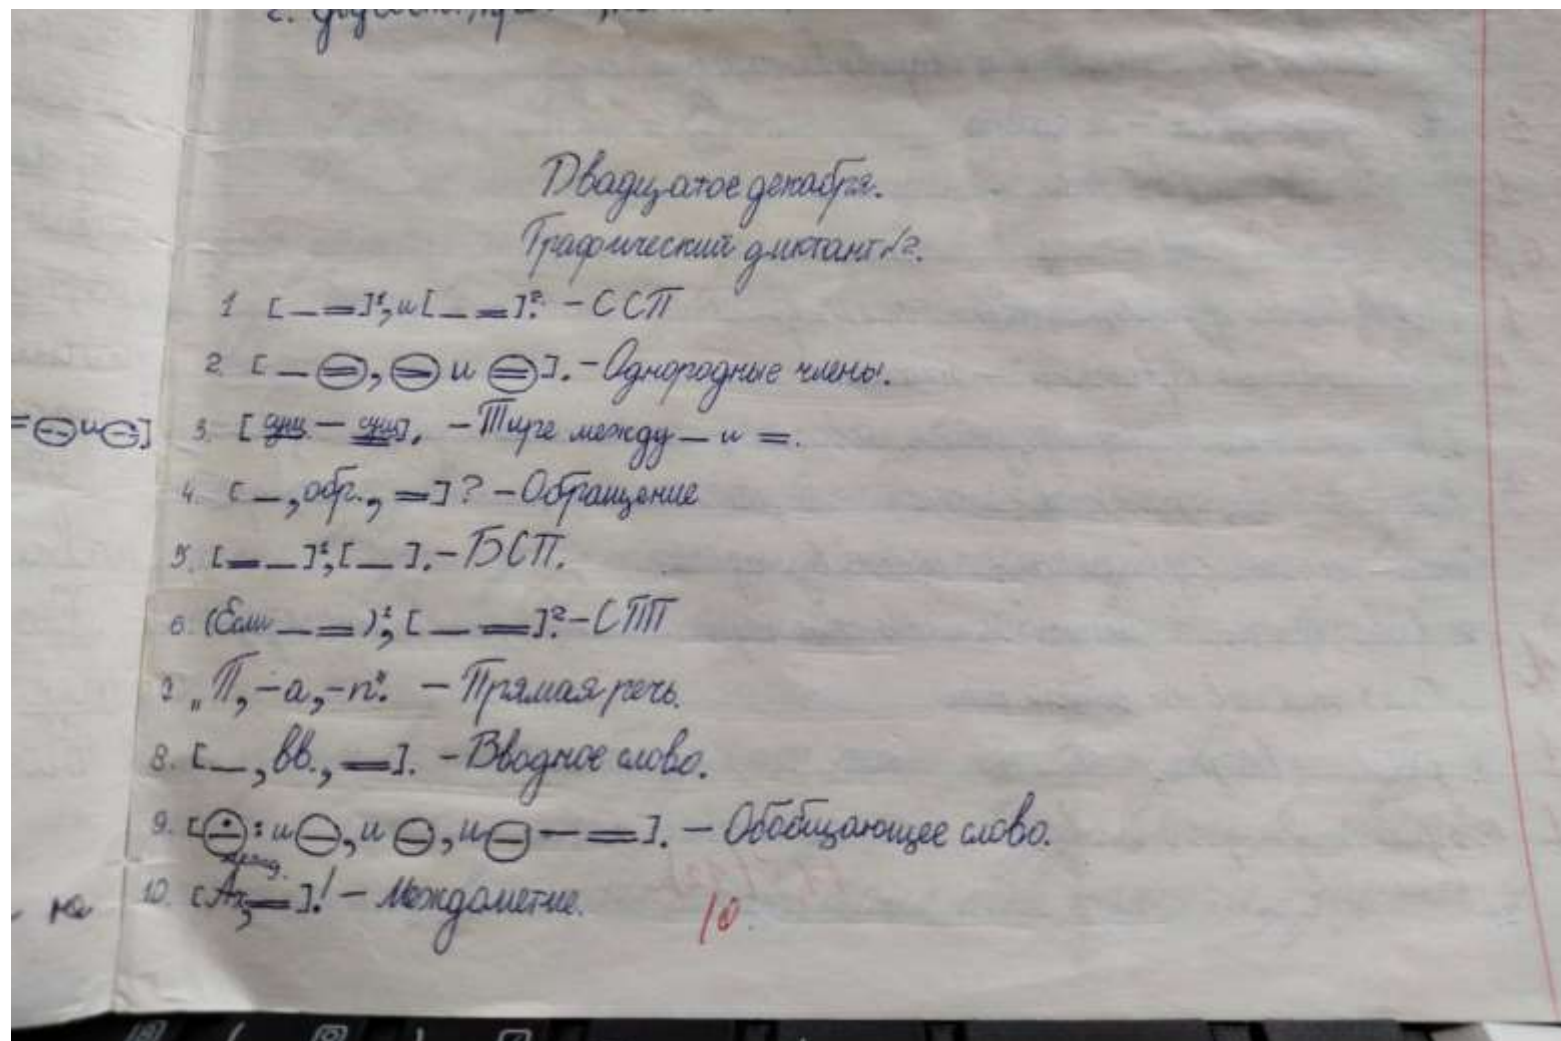 Двадцатое декабря.
Графический диктант №2.
1. [_ =]¹, и [_ =]². - ССП
2. [_ =, = и =]. - Однородные члены.
= и -]
3. [сущ. — сущ.]. - Тире между _ и =.
4. [_, обр., =]? - Обращение
5. [= _]¹, [_ ]. - БСП.
6. (Если _ =)¹, [_ =]². - СПП
7. „П, - а, - п". - Прямая речь.
8. [_, вв., =]. - Вводное слово.
9. [⊙: и ⊖, и ⊖, и ⊖ — =]. - Обобщающее слово.
10. [Ах, =]! - Междометие.
на
10.